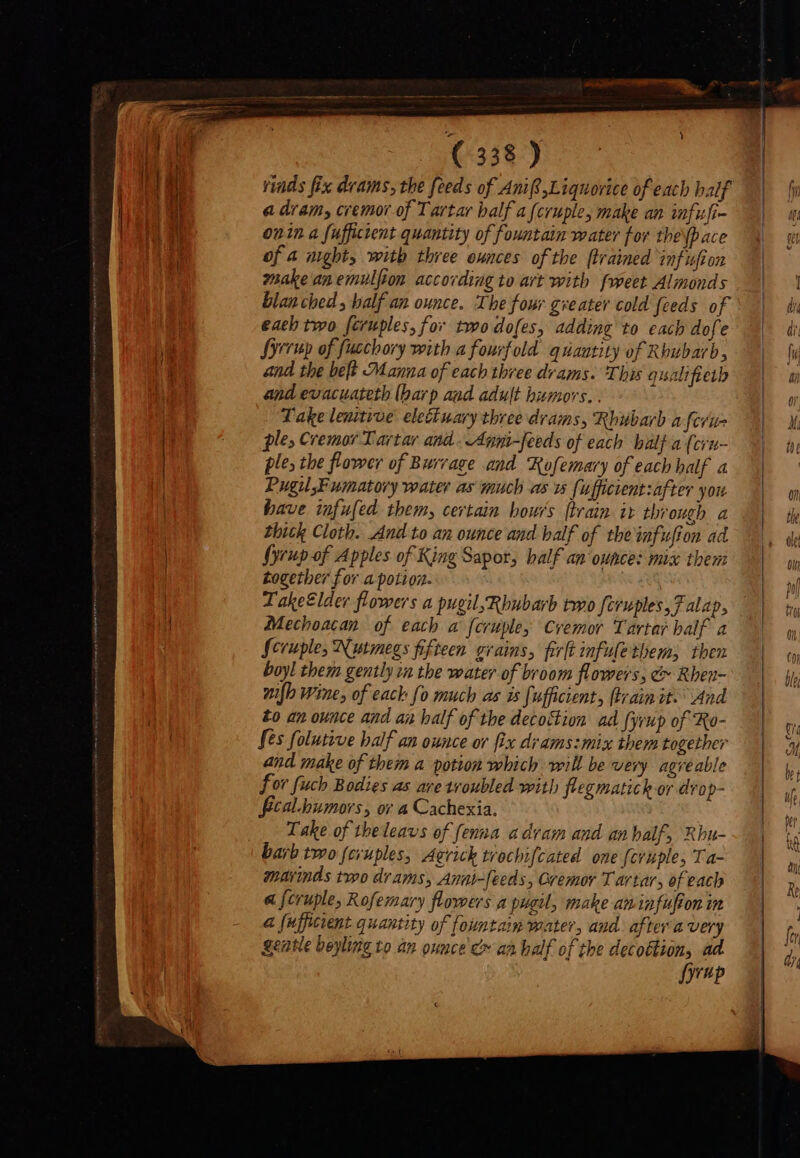 ( 338 )
rinds ſix drams, the ſeeds of Aniſe, Liquorice of each half
a dram, cremor of Tartar half a ſcruple, make an infuſi-
on in a ſufficient quantity of fountain water for the ſpace
of a night, with three ounces of the ſtrained infuſion
make an emulſion according to art with ſweet Almonds
blanched, half an ounce. The four greater cold ſeeds of
each two ſcruples, for two doſes, adding to each doſe
ſyrrup of ſucchory with a fourfold quantity of Rhubarb,
and the beſt Manna of each three drams. This qualifieth
and evacuateth ſharp and aduſt humors.
Take lenitive electuary three drams, Rhubarb a ſcru-
ple, Cremor Tartar and Anni-ſeeds of each half a ſcru-
ple, the flower of Burrage and Roſemary of each half a
Pugil, Fumatory water as much as is ſufficient: after you
have infuſed them, certain hours ſtrain it through a
thick Cloth. And to an ounce and half of the infuſion ad
ſyrup of Apples of King Sapor, half an ounce: mix them
together for a potion.
Take Elder flowers a pugil, Rhubarb two ſcruples, Jalap,
Mechoacan of each a ſcruple, Cremor Tartar half a
ſcruple, Nutmegs fifteen grains, firſt infuſe them, then
boyl them gently in the water of broom flowers, & Rhen-
niſh Wine, of each ſo much as is ſufficient, ſtrain it. And
to an ounce and an half of the decoction ad ſyrup of Ro-
ſes ſolutive half an ounce or ſix drams: mix them together
and make of them a potion which will be very agreable
for ſuch Bodies as are troubled with flegmatick or drop-
ſical humors, or a Cachexia.
Take of the leavs of ſenna a dram and an half, Rhu-
barb two ſcruples, Agrick trochiſcated one ſcruple, Ta-
marinds two drams, Anni-ſeeds, Cremor Tartar, of each
a ſcruple, Roſemary flowers a pugil, make an infuſion in
a ſufficient quantity of fountain water, and after a very
gentle boyling to an ounce & an half of the decoction, ad
ſyrup